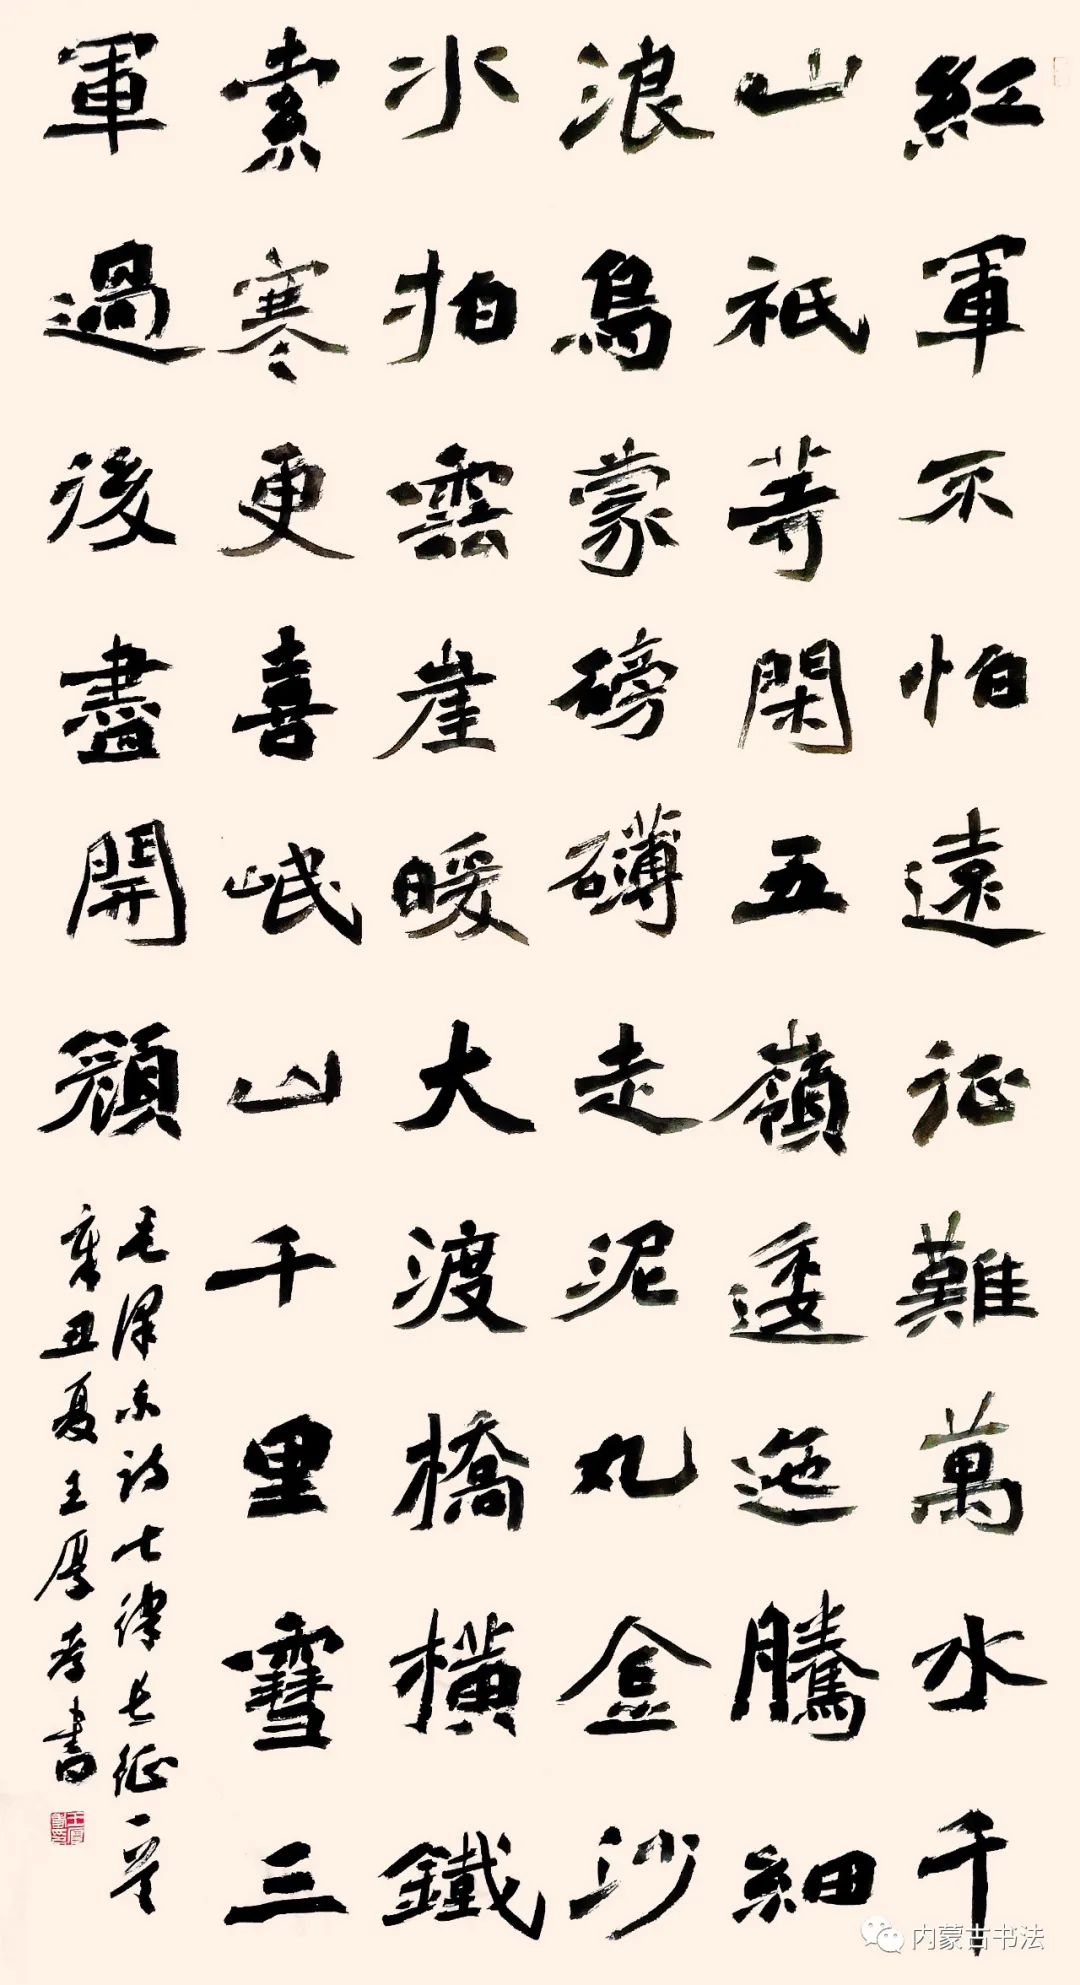 紅軍不怕遠征難萬水千
山祇等閑五嶺逶迤騰細
浪烏蒙磅礴走泥丸金沙
水拍雲崖暖大渡橋橫鐵
索寒更喜岷山千里雪三
軍過後盡開顏
毛澤东詩七律長征一首
辛丑夏王厚孝書
内蒙古书法